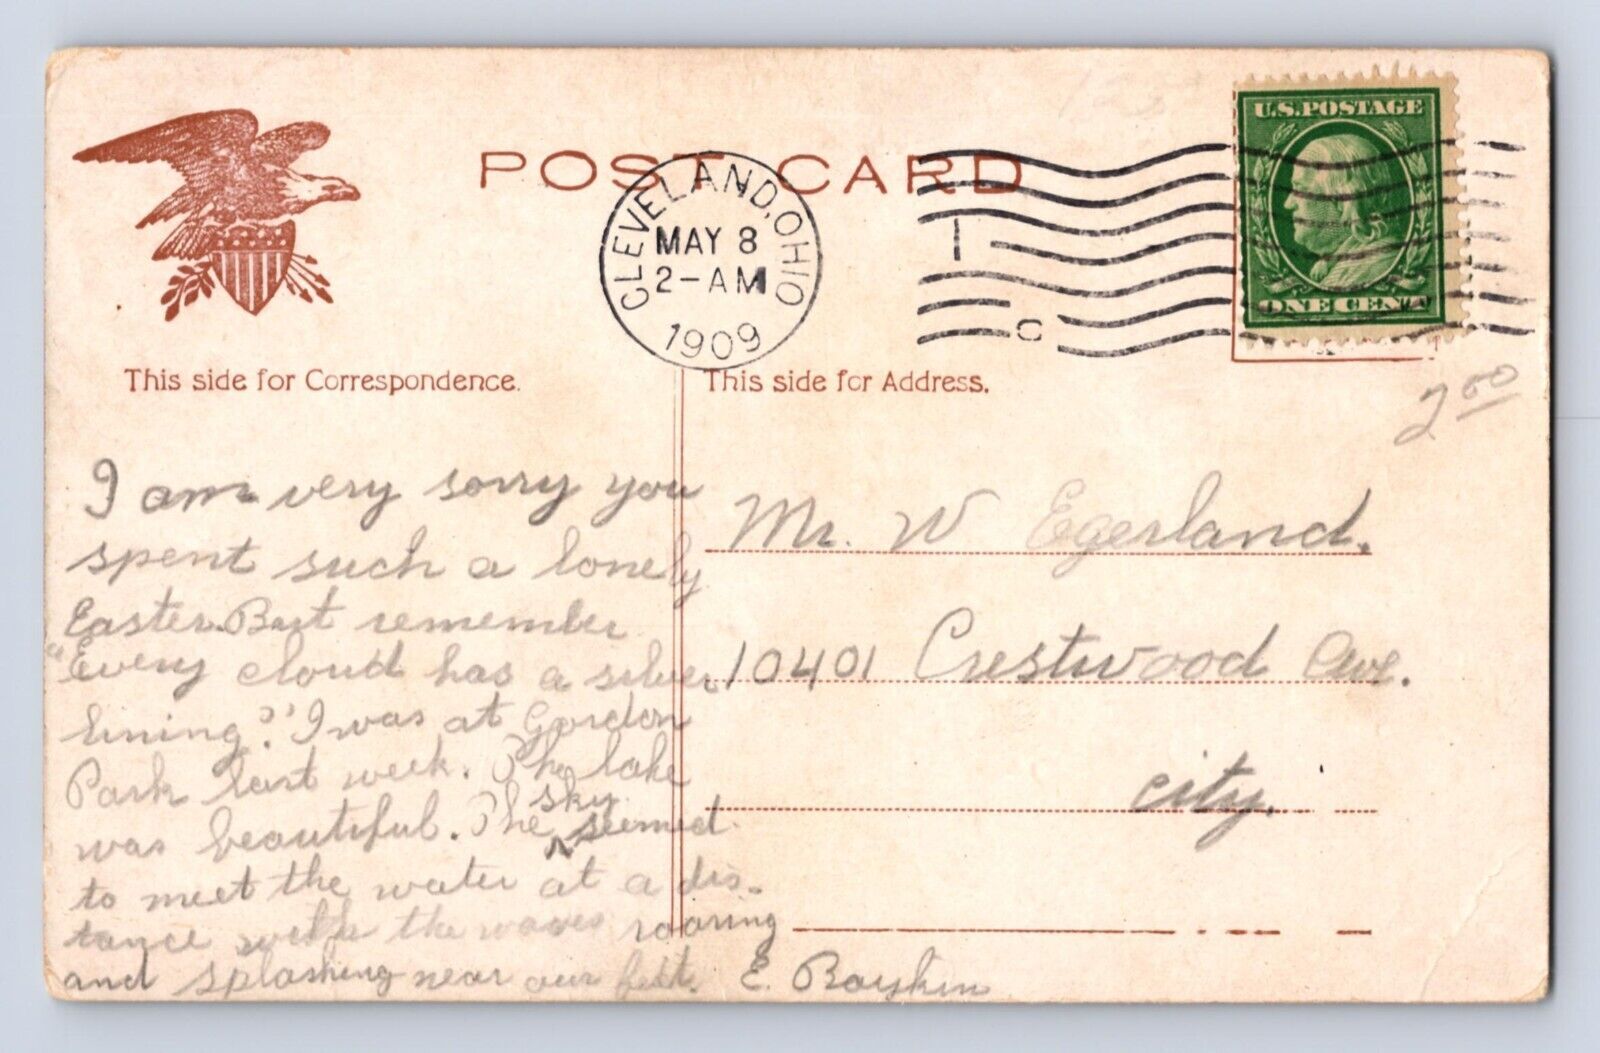 POST CARD
CLEVELAND, OHIO
MAY 8
2-AM
1909
1
C
U.S. POSTAGE
ONE CENT
This side for Correspondence.
This side for Address.
2 00
I am very sorry you
spent such a lonely
Easter. But remember
"Every cloud has a silver
lining". I was at Gordon
Park last week. The lake
was beautiful. The sky seemed
to meet the water at a dis-
tance with the waves roaring
and splashing near our feet. E.
Mr. W Egerland.
10401 Crestwood Ave.
City.